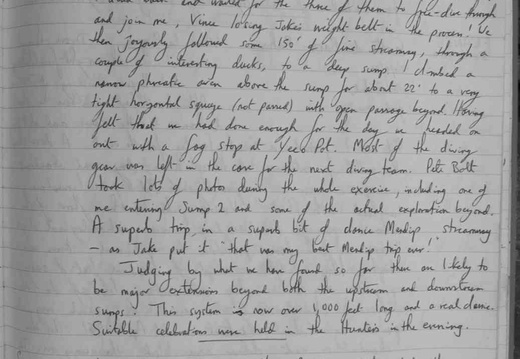 and waited for the three of them to free-dive through
and join me, Vince losing Jake's weight belt in the process! We
then joyously followed some 150' of fine streamway, through a
couple of interesting ducks, to a deep sump. I climbed a
narrow phreatic aven above the sump for about 22' to a very
tight horizontal squeeze (not passed) with open passage beyond. Having
felt that we had done enough for the day we headed on
out with a fag stop at Yeo Pot. Most of the diving
gear was left in the cave for the next diving team. Pete Bolt
took lots of photos during the whole exercise, including one of
me entering Sump 2 and some of the actual exploration beyond.
A superb trip, in a superb bit of classic Mendip streamway
- as Jake put it "that was my best Mendip trip ever!"
Judging by what we have found so far there are likely to
be major extensions beyond both the upstream and downstream
sumps. This system is now over 1,000 feet long and a real classic.
Suitable celebrations were held in the Hunters in the evening.